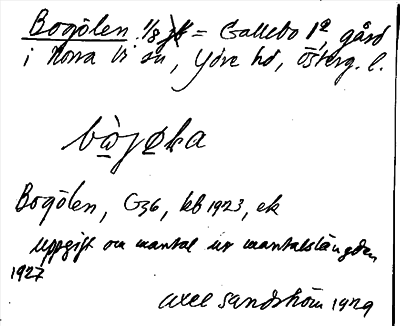 Bogölen 1/8 = Gallebo 1a, gård
i Norra Vi sn, Ydre hd, Österg. l.
Bogölen, G36, kb 1923, ek
uppgift om mantal ur mantalslängden
1927
Axel Sandström 1929